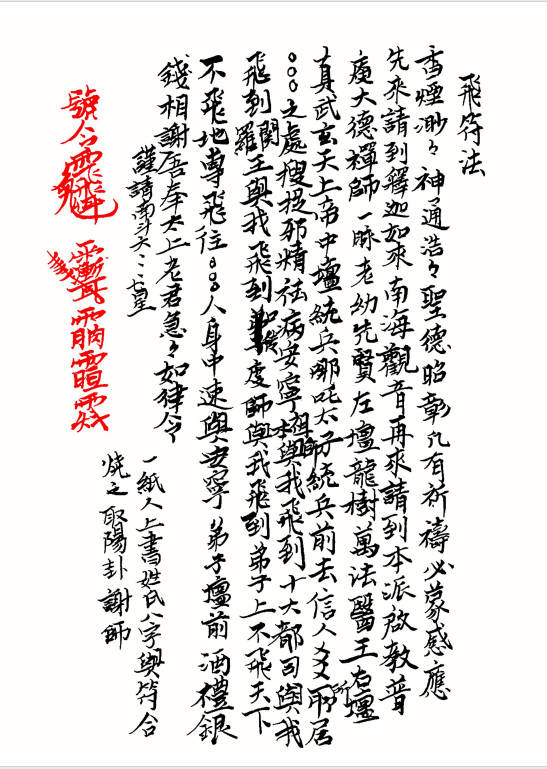 飛符法
香煙渺々神通浩々聖德昭彰凡有祈禱必蒙感應
先來請到釋迦如來南海觀音再來請到本派啟教普
庵大德禪師一脉老幼先賢左壇龍樹萬法醫王右壇
真武玄天上帝中壇統兵哪吒太子統兵前去信人㸚所居
○○○之處搜捉邪精祛病安寧祖師與我飛到十大都司與我
飛到關羅王與我飛到 度師與我飛到弟子上不飛天下
不飛地專飛往○○○人身中速與安寧弟子壇前酒禮銀
錢相謝吾奉太上老君急々如律令
謹請南斗六
號令
一紙人上書姓氏八字與符合
燒之取陽卦謝師